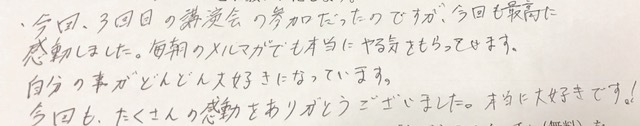 ・今回、3回目の講演会の参加だったのですが、今回も最高に
感動しました。毎朝のメルマガでも本当にやる気をもらってます。
自分の事がどんどん大好きになっています。
今回も、たくさんの感動をありがとうございました。本当に大好きです!
(無料)